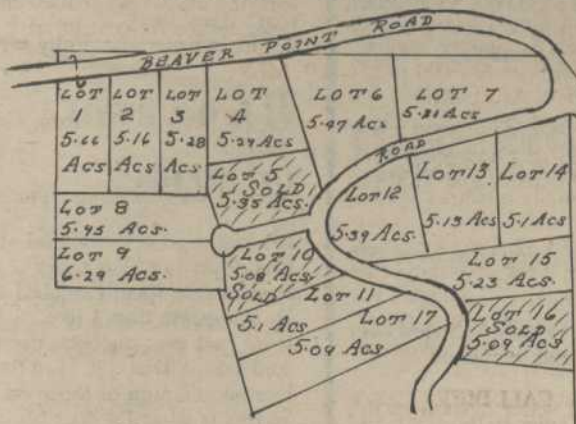 BEAVER POINT ROAD
LOT
1
5.66
ACS
LOT
2
5.16
ACS
LOT
3
5.28
ACS.
LOT
4
5.24 ACS
LOT 5
SOLD
5.35 ACS.
LOT 6
5.47 ACS
LOT 7
5.21 ACS.
ROAD
LOT 8
5.45 ACS.
LOT 9
6.29 ACS.
LOT 10
5.08 ACS.
SOLD
LOT 11
5.1 ACS
LOT 12
5.39 ACS.
LOT 13
5.13 ACS
LOT 14
5.1 ACS
LOT 15
5.23 ACS.
LOT 16
SOLD
5.09 ACS
LOT 17
5.04 ACS